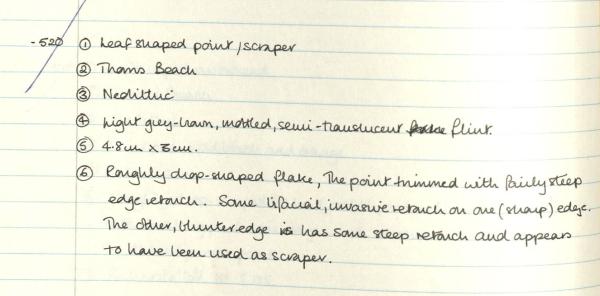 -520 ① Leaf shaped point/scraper
② Thorns Beach
③ Neolithic
④ Light grey-brown, mottled, semi-translucent flint.
⑤ 4.8cm x 3cm.
⑥ Roughly drop-shaped flake, The point trimmed with fairly steep
edge retouch. Some bifacial, invasive retouch on one (sharp) edge.
The other, blunter edge is has some steep retouch and appears
to have been used as scraper.